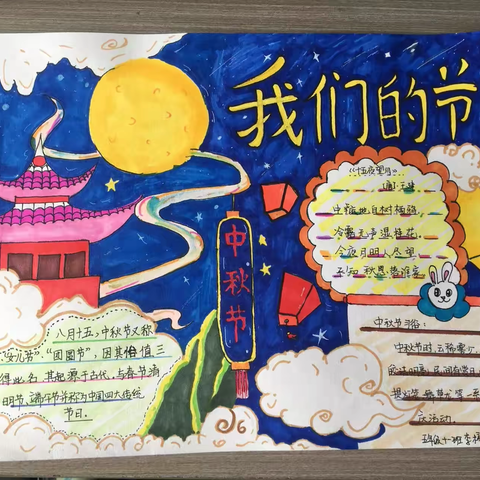 我们的节
《十五夜望月》
唐·王建
中庭地白树栖鸦,
冷露无声湿桂花,
今夜月明人尽望,
不知秋思落谁家
中秋节
八月十五,中秋节又称
"团圆节",因其恰值三
得此名,其起源于古代,与春节清
明节、端午节并称为中国四大传统
节日。
中秋节习俗:
中秋节时,云稀雾少,
庆活动。
五年级十一班李